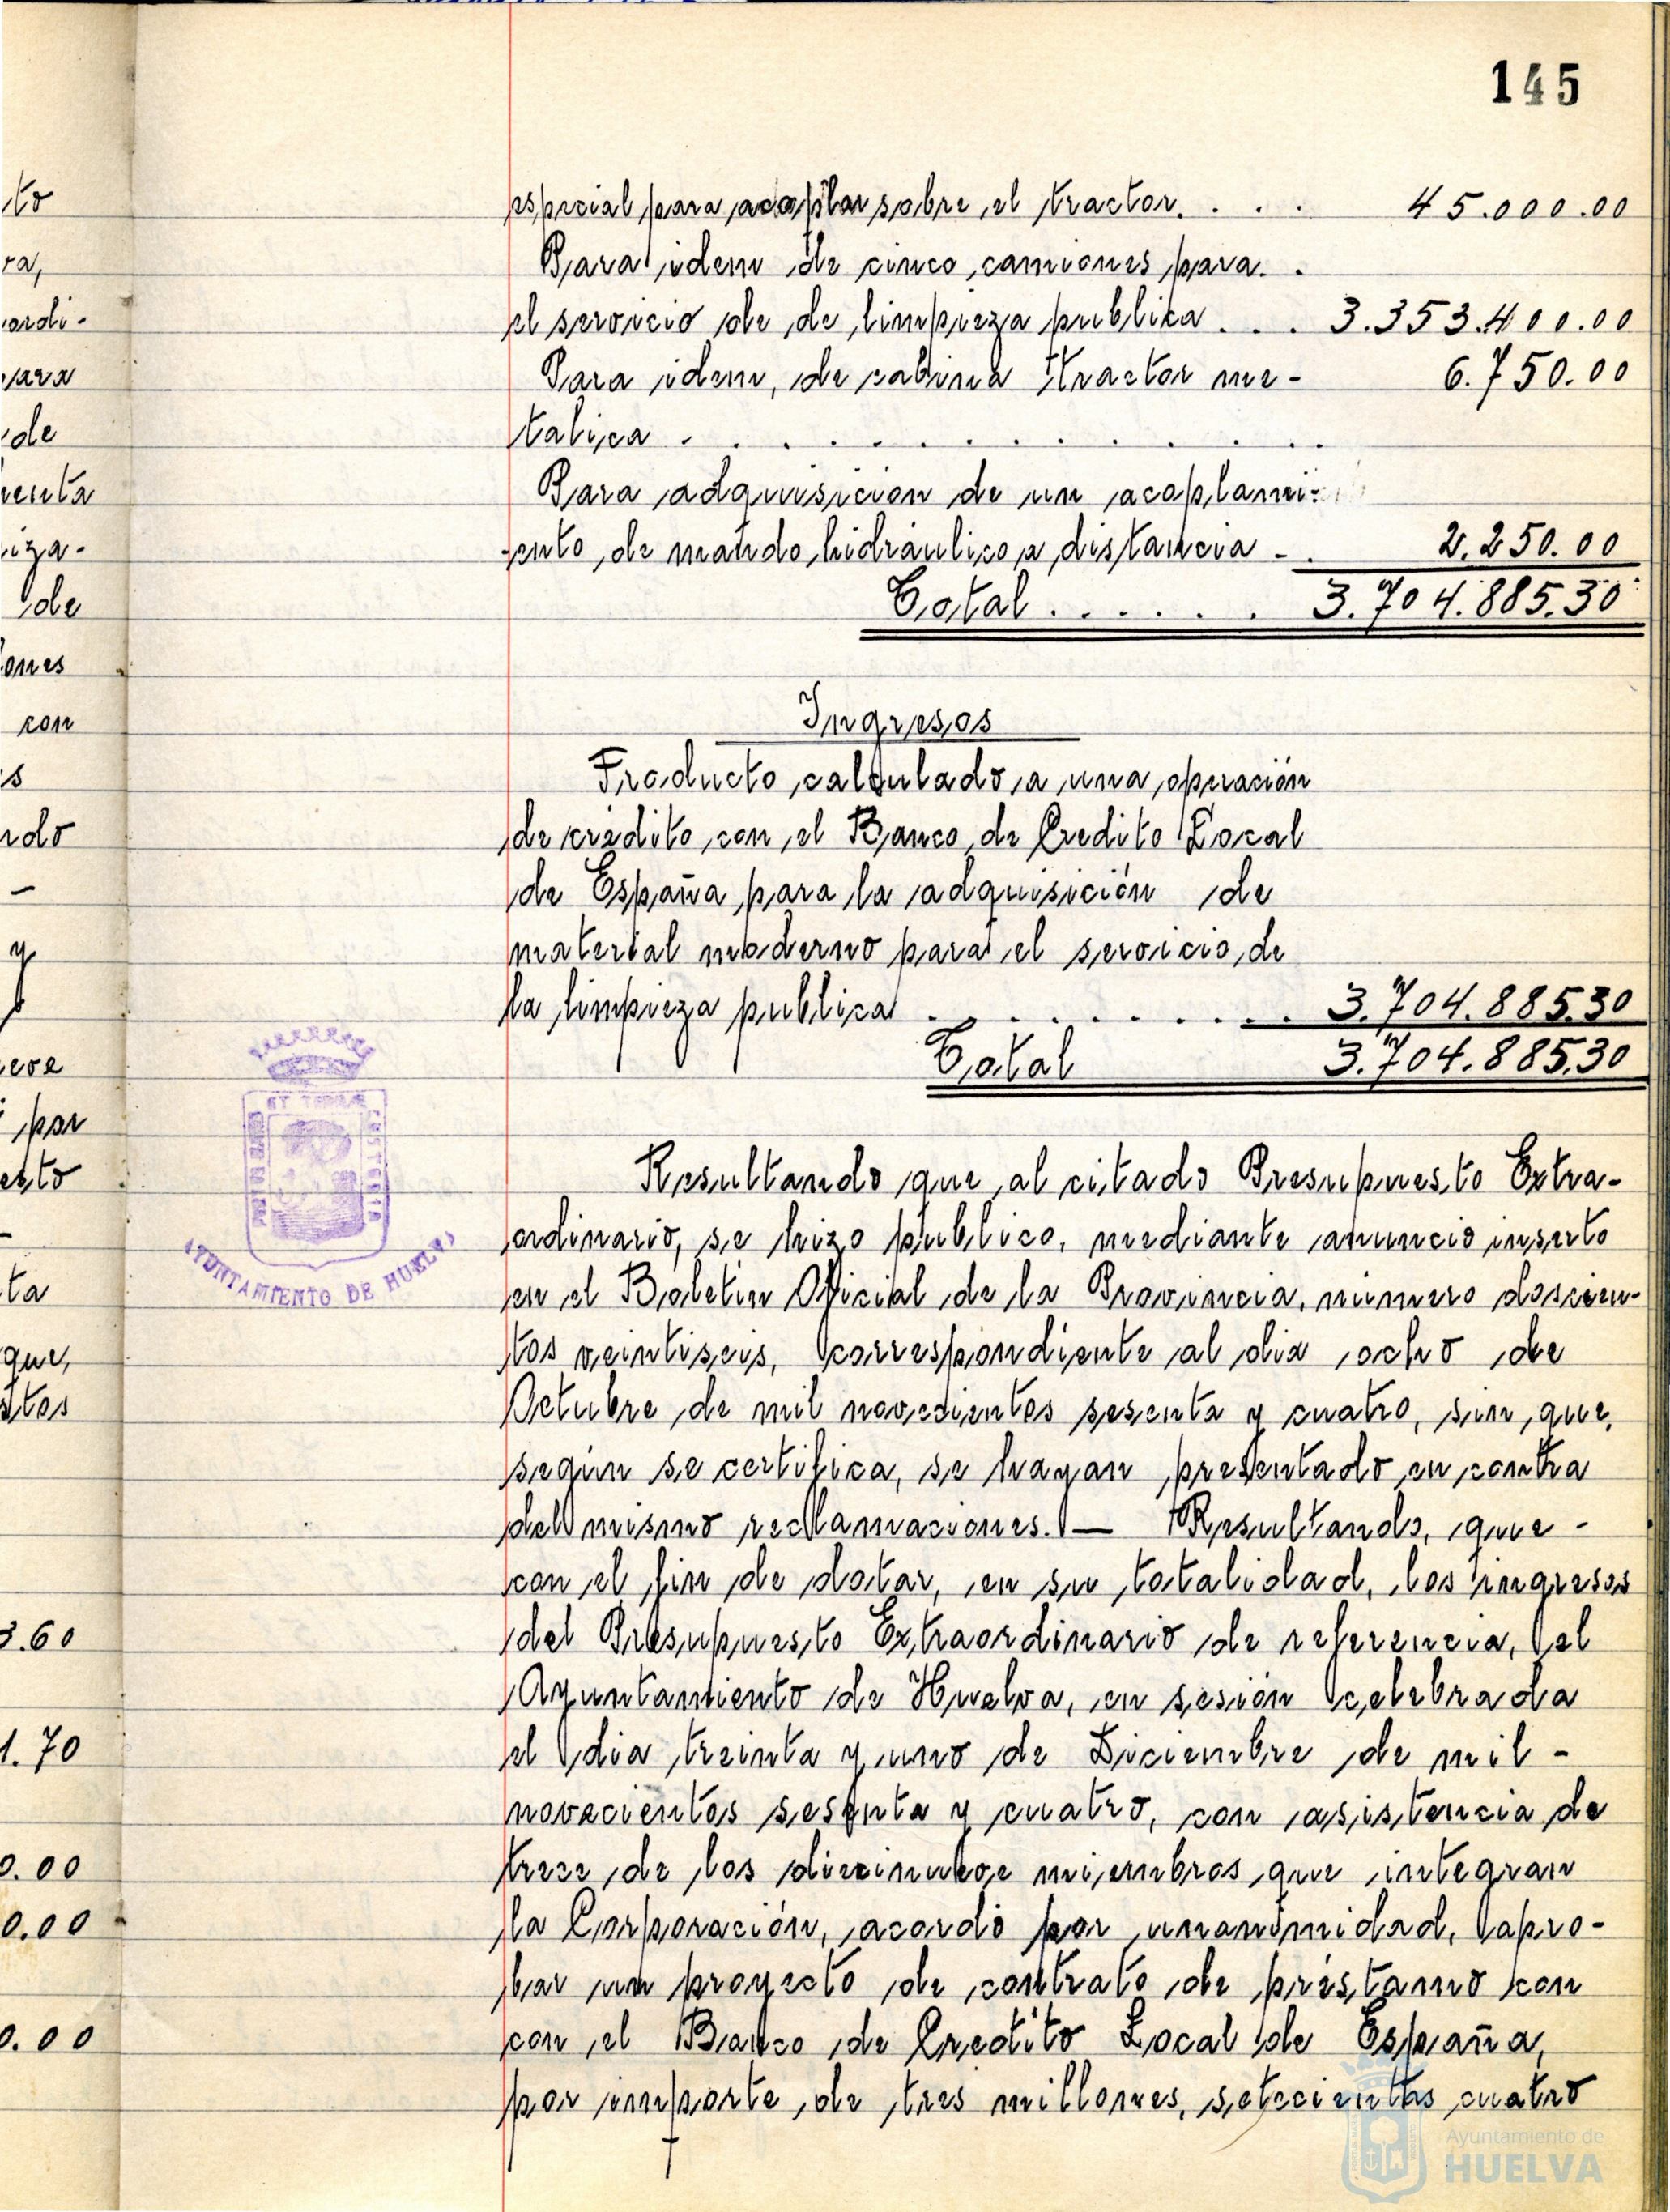 145
to
ra,
ordi-
para
de
renta
iza-
de
ones
con
s
ndo
-
y
eve
por
esto
ta
que,
stos
3.60
1.70
0.00
0.00
0.00
especial para acoplar sobre el tractor. . . . 45.000.00
Para idem de cinco camiones para. .
el servicio de de limpieza publika . . . 3.353.400.00
Para idem, de cabina tractor me- 6.750.00
talica . . . . . . . . . . . .
Para adquisicion de un acoplami-
ento de mando hidráulico a distancia - . 2.250.00
Total . . . . . . 3.704.885.30
Ingresos
Producto calculado a una operación
de crédito con el Banco de Credito Local
de España para la adquisición de
material moderno para el servicio de
la limpieza publica . . . . . . . . . 3.704.885.30
Total 3.704.885.30
AYUNTAMIENTO DE HUELVA
Resultando que al citado Presupuesto Extra-
ordinario, se hizo publico, mediante anuncio inserto
en el Boletin Oficial de la Provincia, numero doscien-
tos veintiseis, correspondiente al dia ocho de
Octubre de mil novecientos sesenta y cuatro, sin que,
segun se certifica, se hayan presentado en contra
del mismo reclamaciones. — Resultando, que -
con el fin de dotar, en su totalidad, los ingresos
del Presupuesto Extraordinario de referencia, el
Ayuntamiento de Huelva, en sesión celebrada
el dia treinta y uno de Diciembre de mil -
novecientos sesenta y cuatro, con asistencia de
trece de los miembros que integran
la Corporación, acordó por unanimidad, apro-
bar un proyecto de contrato de préstamo con
con el Banco de Credito Local de España,
por importe de tres millones, setecientos cuatro
Ayuntamiento de
HUELVA